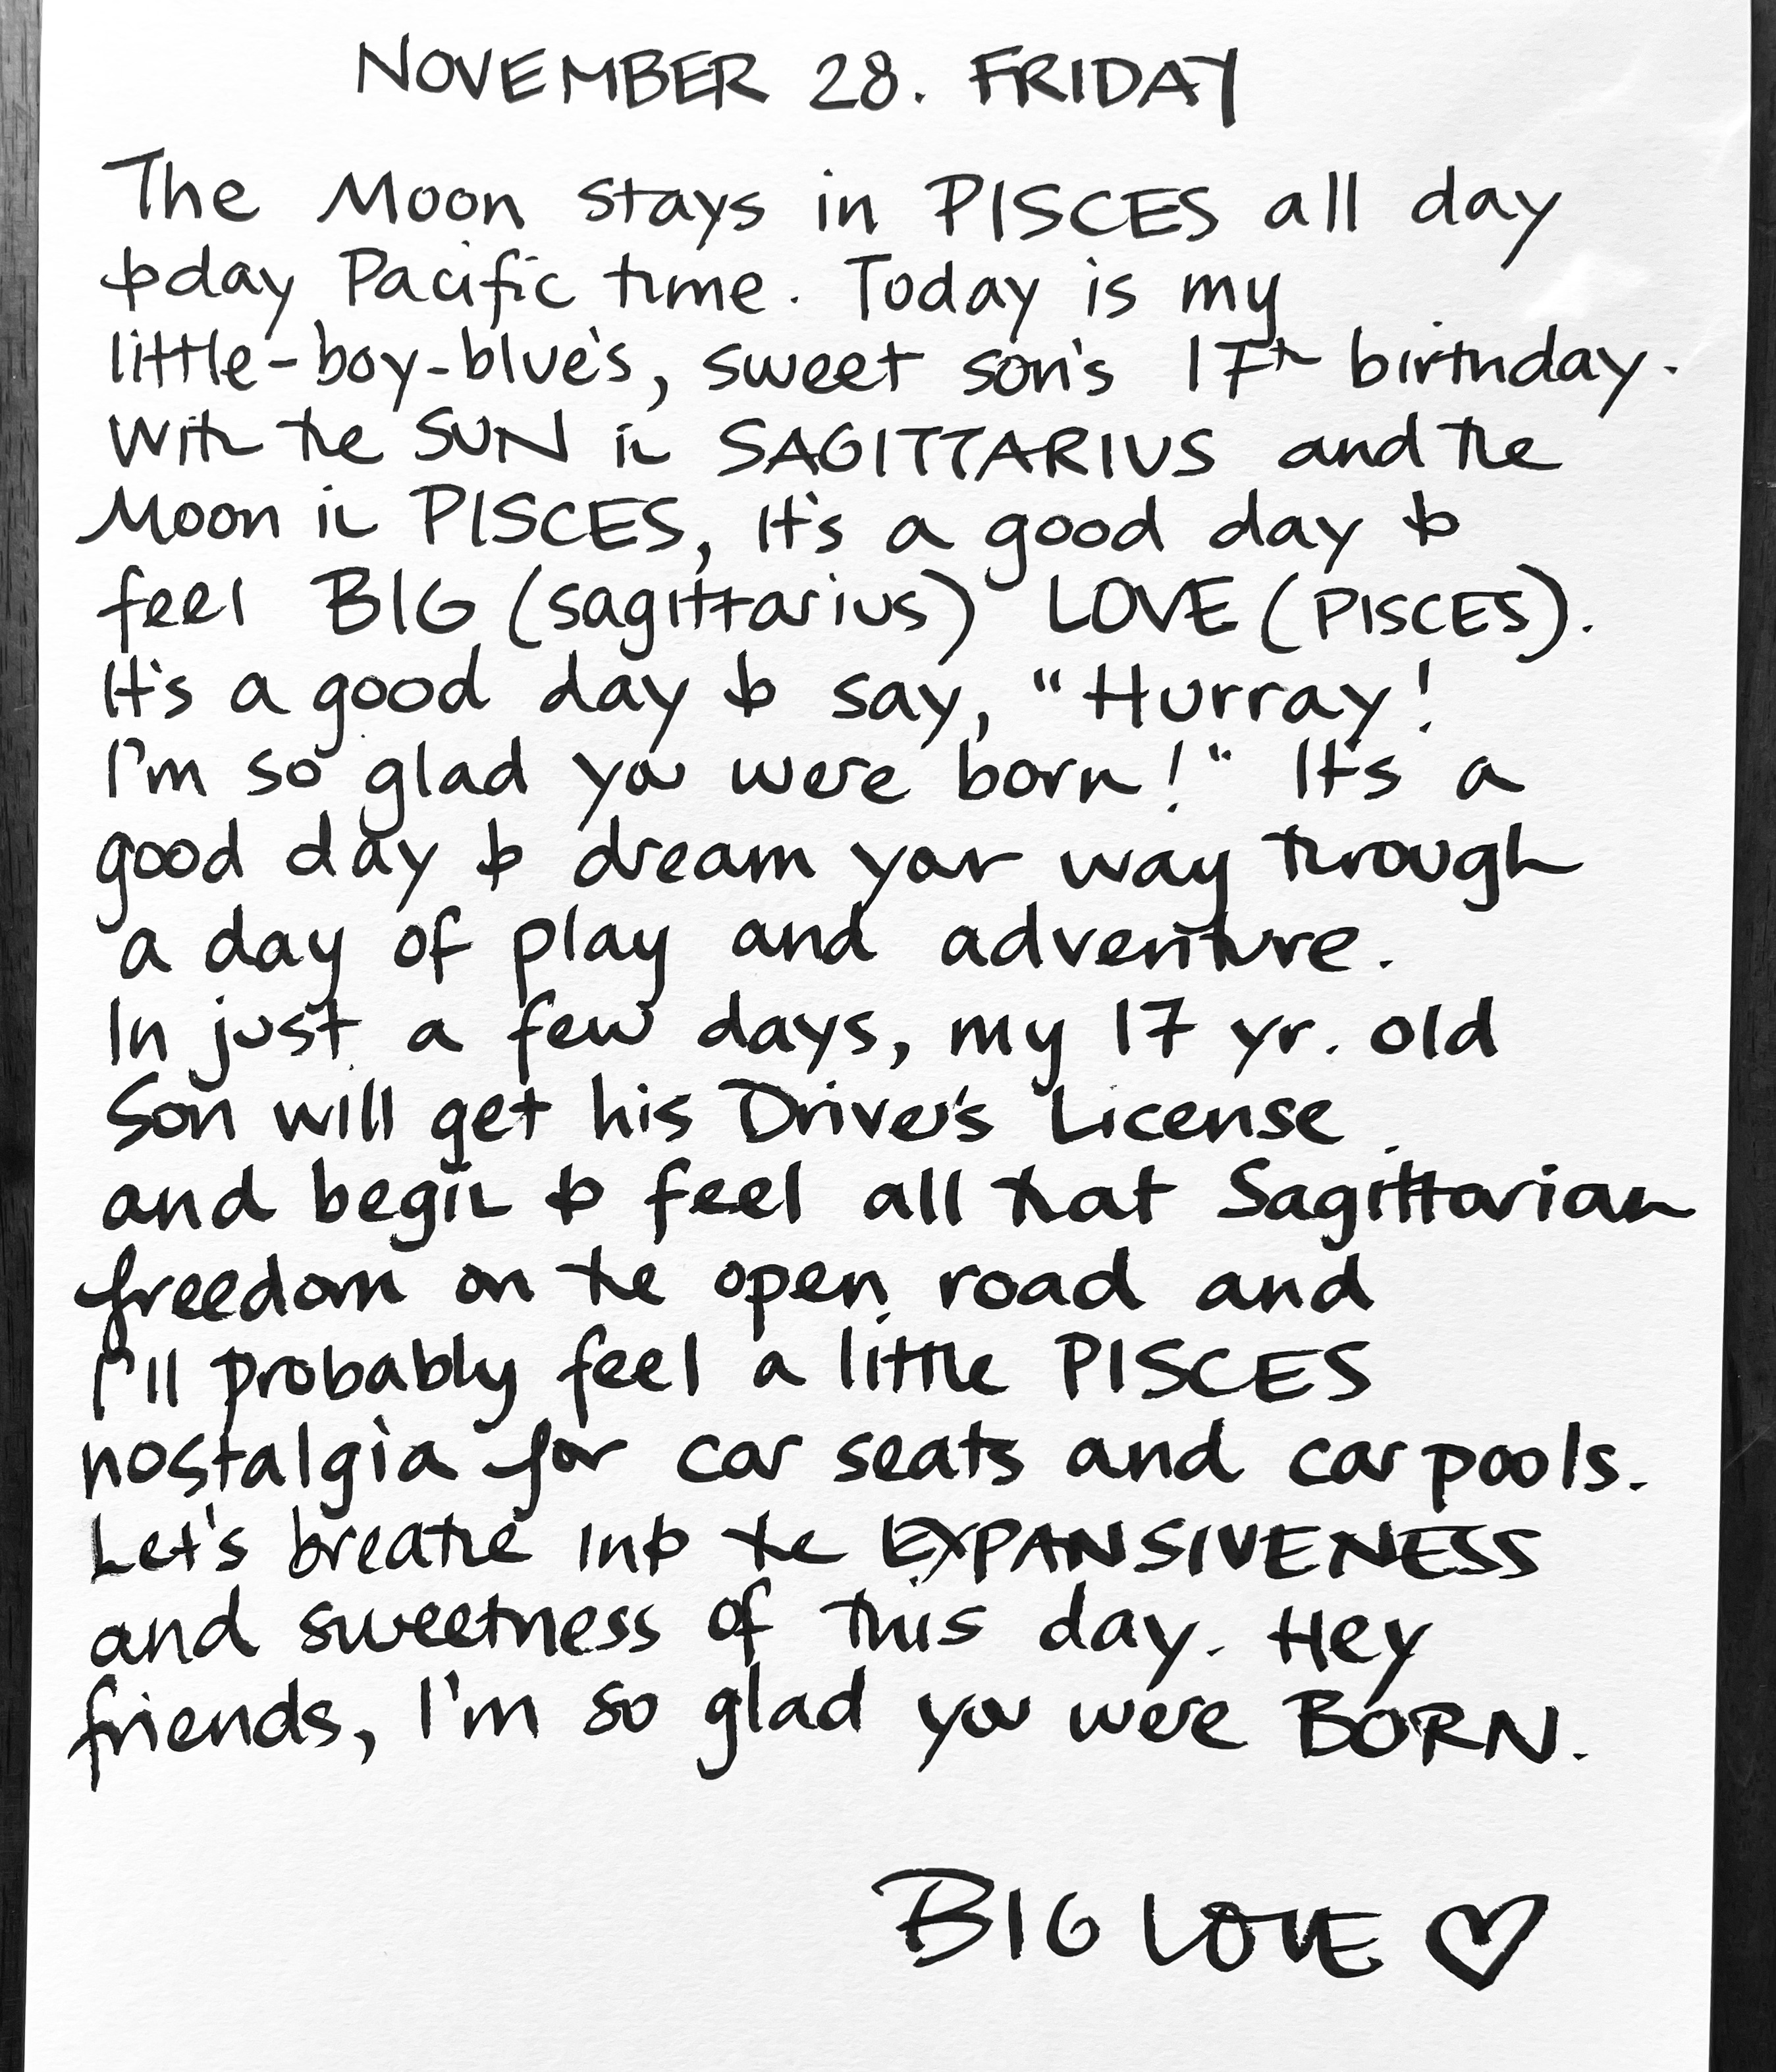 NOVEMBER 28. FRIDAY
The Moon stays in PISCES all day
today Pacific time. Today is my
little-boy-blue's, sweet son's 17th birthday.
With the SUN in SAGITTARIUS and the
Moon in PISCES, it's a good day to
feel BIG (sagittarius) LOVE (PISCES).
It's a good day to say, "Hurray!
I'm so glad you were born!" It's a
good day to dream your way through
a day of play and adventure.
In just a few days, my 17 yr. old
Son will get his Driver's License
and begin to feel all that Sagittarian
freedom on the open road and
I'll probably feel a little PISCES
nostalgia for car seats and car pools.
Let's breathe into the EXPANSIVENESS
and sweetness of this day. Hey
friends, I'm so glad you were BORN.
BIG LOVE ♡